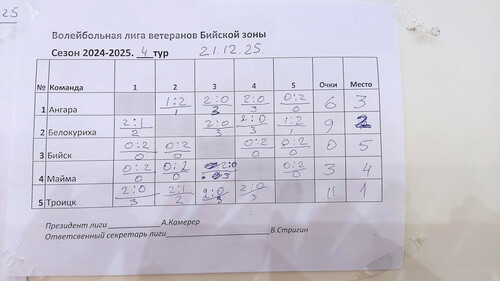 25
Волейбольная лига ветеранов Бийской зоны
Сезон 2024-2025. 4 тур 21.12.25.
№ Команда 1 2 3 4 5 Очки Место
1 Ангара 1:2 2:0 2:0 0:2 6 3
1 3 3 0
2 Белокуриха 2:1 2:0 2:0 1:2 9 2
2 3 3 1
3 Бийск 0:2 0:2 0:2 0:2 0 5
0 0 0 0
4 Майма 0:2 0:2 2:0 0:2 3 4
0 0 3 0
5 Троицк 2:0 2:1 2:0 2:0 11 1
3 2 3 3
Президент лиги____________А.Камерер
Ответсвенный секретарь лиги____________________В.Стригин